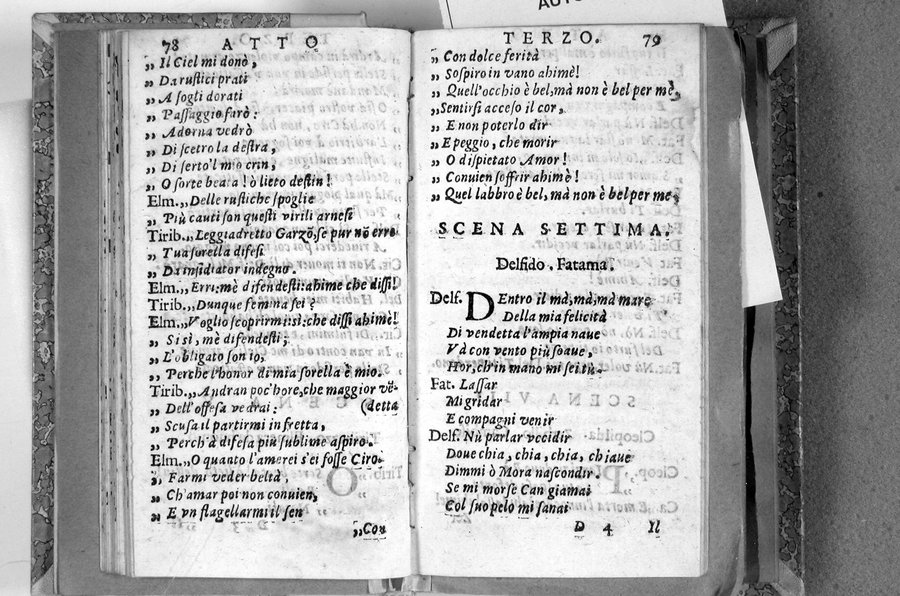 AUTO
78 ATTO
„ Il Ciel mi donò,
„ Da rustici prati
„ A sogli dorati
„ Passaggio farò:
„ Adorna vedrò
„ Di scetro la destra,
„ Di serto'l mio crin,
„ O sorte beata! ò lieto destin!
Elm.„ Delle rustiche spoglie
„ Più cauti son questi virili arnesi
Tirib.„ Leggiadretto Garzõ, se pur nõ erro
„ Tua sorella difesi
„ Da insidiator indegno.
Elm.„ Err: mè difendesti: ahime che dissi!
Tirib.„ Dunque femina sei?
Elm.„ Voglio scoprirmi: sì: che dissi ahimè!
„ Si sì, mè difendesti;
„ L'obligato son io,
„ Perche l'honor di mia sorella è mio.
Tirib.„ Andran poc'hore, che maggior vẽ-
„ Dell'offesa vedrai: (detta
„ Scusa il partirmi in fretta,
„ Perch'à difesa più sublime aspiro.
Elm.„ O quanto l'amerei s'ei fosse Ciro.
„ Farmi veder beltà,
„ Ch'amar poi non conuien,
„ E vn flagellarmi il sen
„ Con
TERZO. 79
„ Con dolce ferità
„ Sospiro in vano ahimè!
„ Quell'occhio è bel, mà non è bel per me,
„ Sentirsi acceso il cor,
„ E non poterlo dir
„ E peggio, che morir
„ O dispietato Amor!
„ Conuien soffrir ahimè!
„ Quel labbro è bel, mà non è bel per me,
SCENA SETTIMA.
Delfido. Fatama.
Delf. DEntro il mà, mà, mà mare
Della mia felicità
Di vendetta l'ampia naue
Và con vento più soaue,
Hor, ch'in mano mi sei tù.
Fat. Lassar
Mi gridar
E compagni venir
Delf. Nù parlar vccidir
Doue chia, chia, chia, chiaue
Dimmi ò Mora nascondir.
Se mi morse Can giamai
Col suo pelo mi sanai
D 4 Il